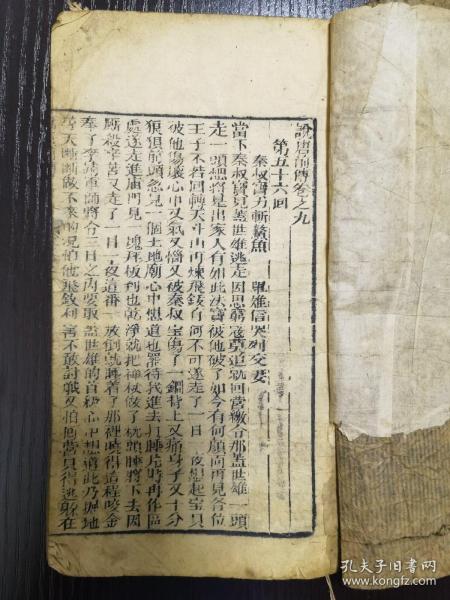 說唐前傳卷之九
第五十六回
秦叔寶力斬鰲魚　單雄信哭別交妻
當下秦叔寶見蓋世雄逃走因思窮寇莫追就回營繳令那蓋世雄一頭
走一頭想將是出家人有如此法寶被他破了如今有何顏面再見各位
王子不若回轉天斗山再煉飛鈸有何不可逃走了一日一夜想起寶貝
被他傷壞心中又氣又惱又被秦叔寶傷了一鐧持上又痛身子又十分
狼狽前頭忽見一個土地廟心中想道也罷待我進去且睡片時再作區
處遂走進廟門見一塊拜板到也乾淨就把神板做了枕頭睡將下去因
廝殺辛苦又走了一日一夜這番一放倒就睡着了那裡曉得這程咬金
奉了李靖軍師將令三日之內要取蓋世雄的首級心中想道此乃
天做不來的況怕他飛鈸利害不敢討戰又怕他當真得逃躲在
孔夫子旧书网
www.kongfz.com